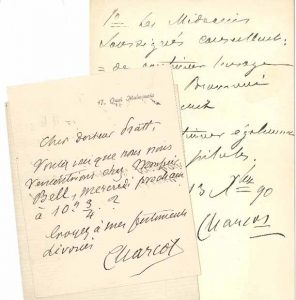 1o Les Médecins
soussignés consultants:
= de continuer l'usage
Bromure
continuer également
pilules.
13 Xbre 90
Charcot
17, Quai Malaquais
Cher docteur Pratt,
Voulez vous que nous nous
rencontrions chez Monsieur
Bell, mercredi prochain
à 10h 3/4 ?
Croyez à mes sentiments
dévoués
Charcot